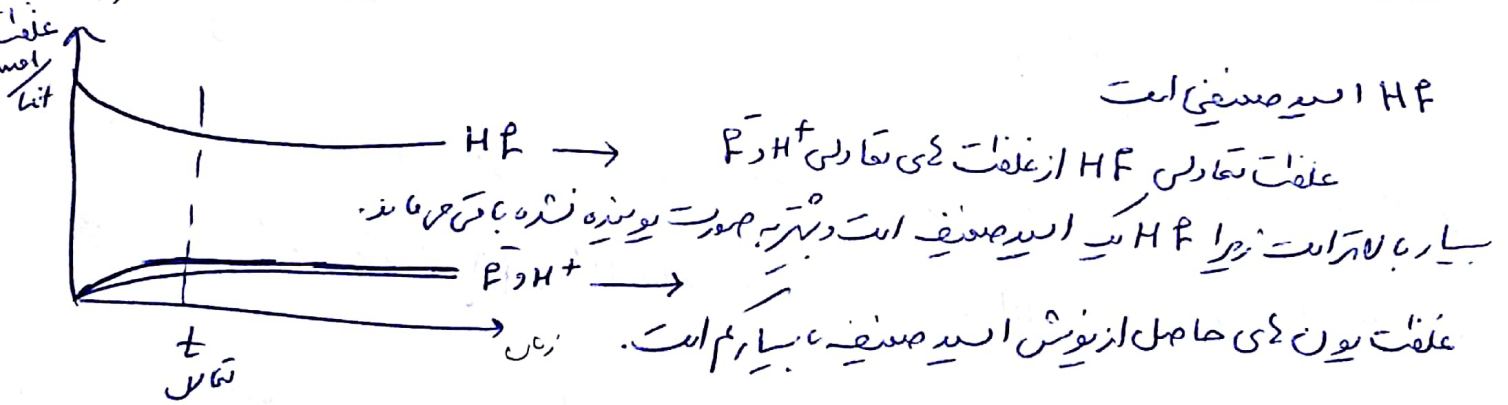 غلظت
mol/Lit
HF اسید ضعیفی است
HF →
غلظت تعادلی HF از غلظت های تعادلی H+ و F-
بسیار بالاتر است زیرا HF یک اسید ضعیف است و بیشتر به صورت یونیده نشده باقی می ماند.
F- و H+ →
غلظت یون های حاصل از یونش اسید ضعیف، بسیار کم است.
زمان
t
تعادل